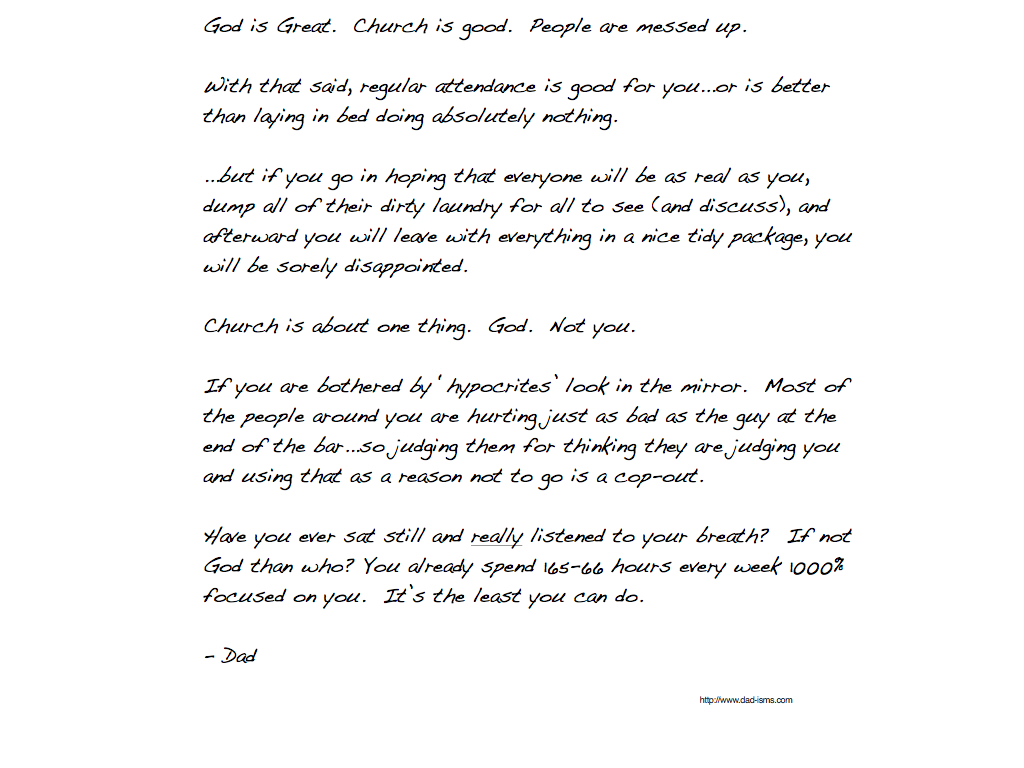 God is Great.  Church is good.  People are messed up.
With that said, regular attendance is good for you...or is better
than laying in bed doing absolutely nothing.
...but if you go in hoping that everyone will be as real as you,
dump all of their dirty laundry for all to see (and discuss), and
afterward you will leave with everything in a nice tidy package, you
will be sorely disappointed.
Church is about one thing.  God.  Not you.
If you are bothered by ' hypocrites` look in the mirror.  Most of
the people around you are hurting just as bad as the guy at the
end of the bar...so judging them for thinking they are judging you
and using that as a reason not to go is a cop-out.
Have you ever sat still and really listened to your breath?  If not
God than who? You already spend 165-66 hours every week 1000%
focused on you.  It`s the least you can do.
- Dad
http://www.dad-isms.com